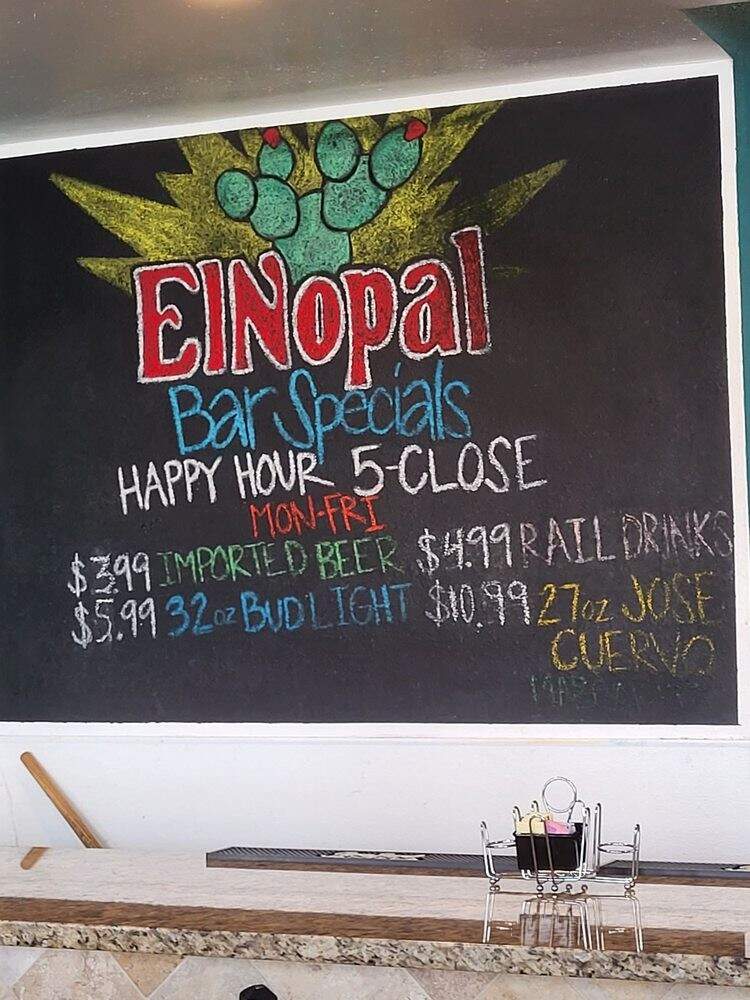 El Nopal
Bar Specials
HAPPY HOUR 5-CLOSE
MON-FRI
$3.99 IMPORTED BEER
$5.99 32oz BUD LIGHT
$4.99 RAIL DRINKS
$10.99 27oz JOSE
CUERVO